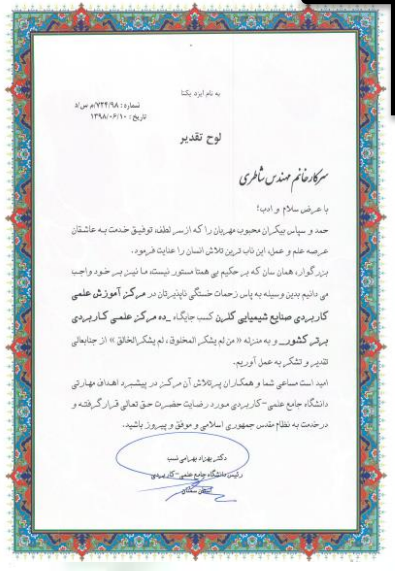 به نام ایزد یکتا
شماره : ۷۳۴/۹۸/م س/د
تاریخ : ۱۳۹۸/۰۶/۱۰
لوح تقدیر
سرکار خانم مهندس شاطری
با عرض سلام و ادب؛
حمد و سپاس بیکران محبوب مهربان را که از سر لطف، توفیق خدمت به عاشقان
عرصه علم و عمل، این ناب ترین تلاش انسان را عنایت فرمود.
بزرگوار، همان سان که بر حکیم بی همتا مستور نیست، ما نیز بر خود واجب
می دانیم بدین وسیله به پاس زحمات خستگی ناپذیرتان در مرکز آموزش علمی
کاربردی صنایع شیمیایی کلرن کسب جایگاه _ده مرکز علمی کاربردی
برتر کشور_ و به منزله « من لم یشکر المخلوق ، لم یشکر الخالق » از جنابعالی
تقدیر و تشکر به عمل آوریم.
امید است مساعی شما و همکاران پرتلاش آن مرکز در پیشبرد اهداف مهارتی
دانشگاه جامع علمی-کاربردی مورد رضایت حضرت حق تعالی قرار گرفته و
در خدمت به نظام مقدس جمهوری اسلامی و موفق و پیروز باشید.
دکتر بهزاد بهرامی نسب
رئیس دانشگاه جامع علمی-کاربردی
استان سمنان